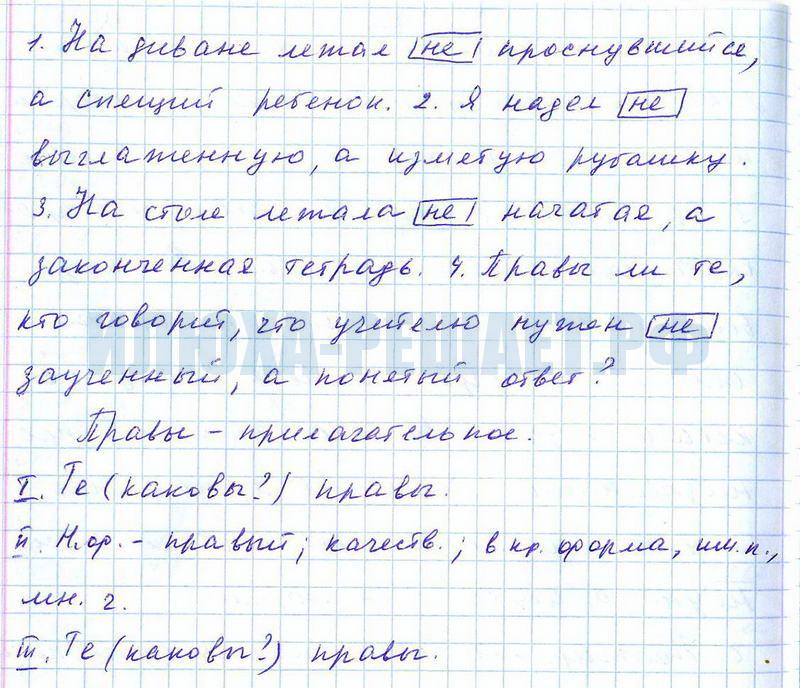 1. На диване лежал не проснувшийся,
а спящий ребенок. 2. Я надел не
выглаженную, а измятую рубашку.
3. На столе лежала не начатая, а
законченная тетрадь. 4. Правы ли те,
кто говорит, что учителю нужен не
ИЛЮХА-РЕШАЕТ.РФ
заученный, а понятый ответ?
Правы – прилагательное.
I. Те (каковы?) правы.
II. Н.ф. – правый; качеств.; в кр. форма, им.п.,
мн. ч.
III. Те (каковы?) правы.